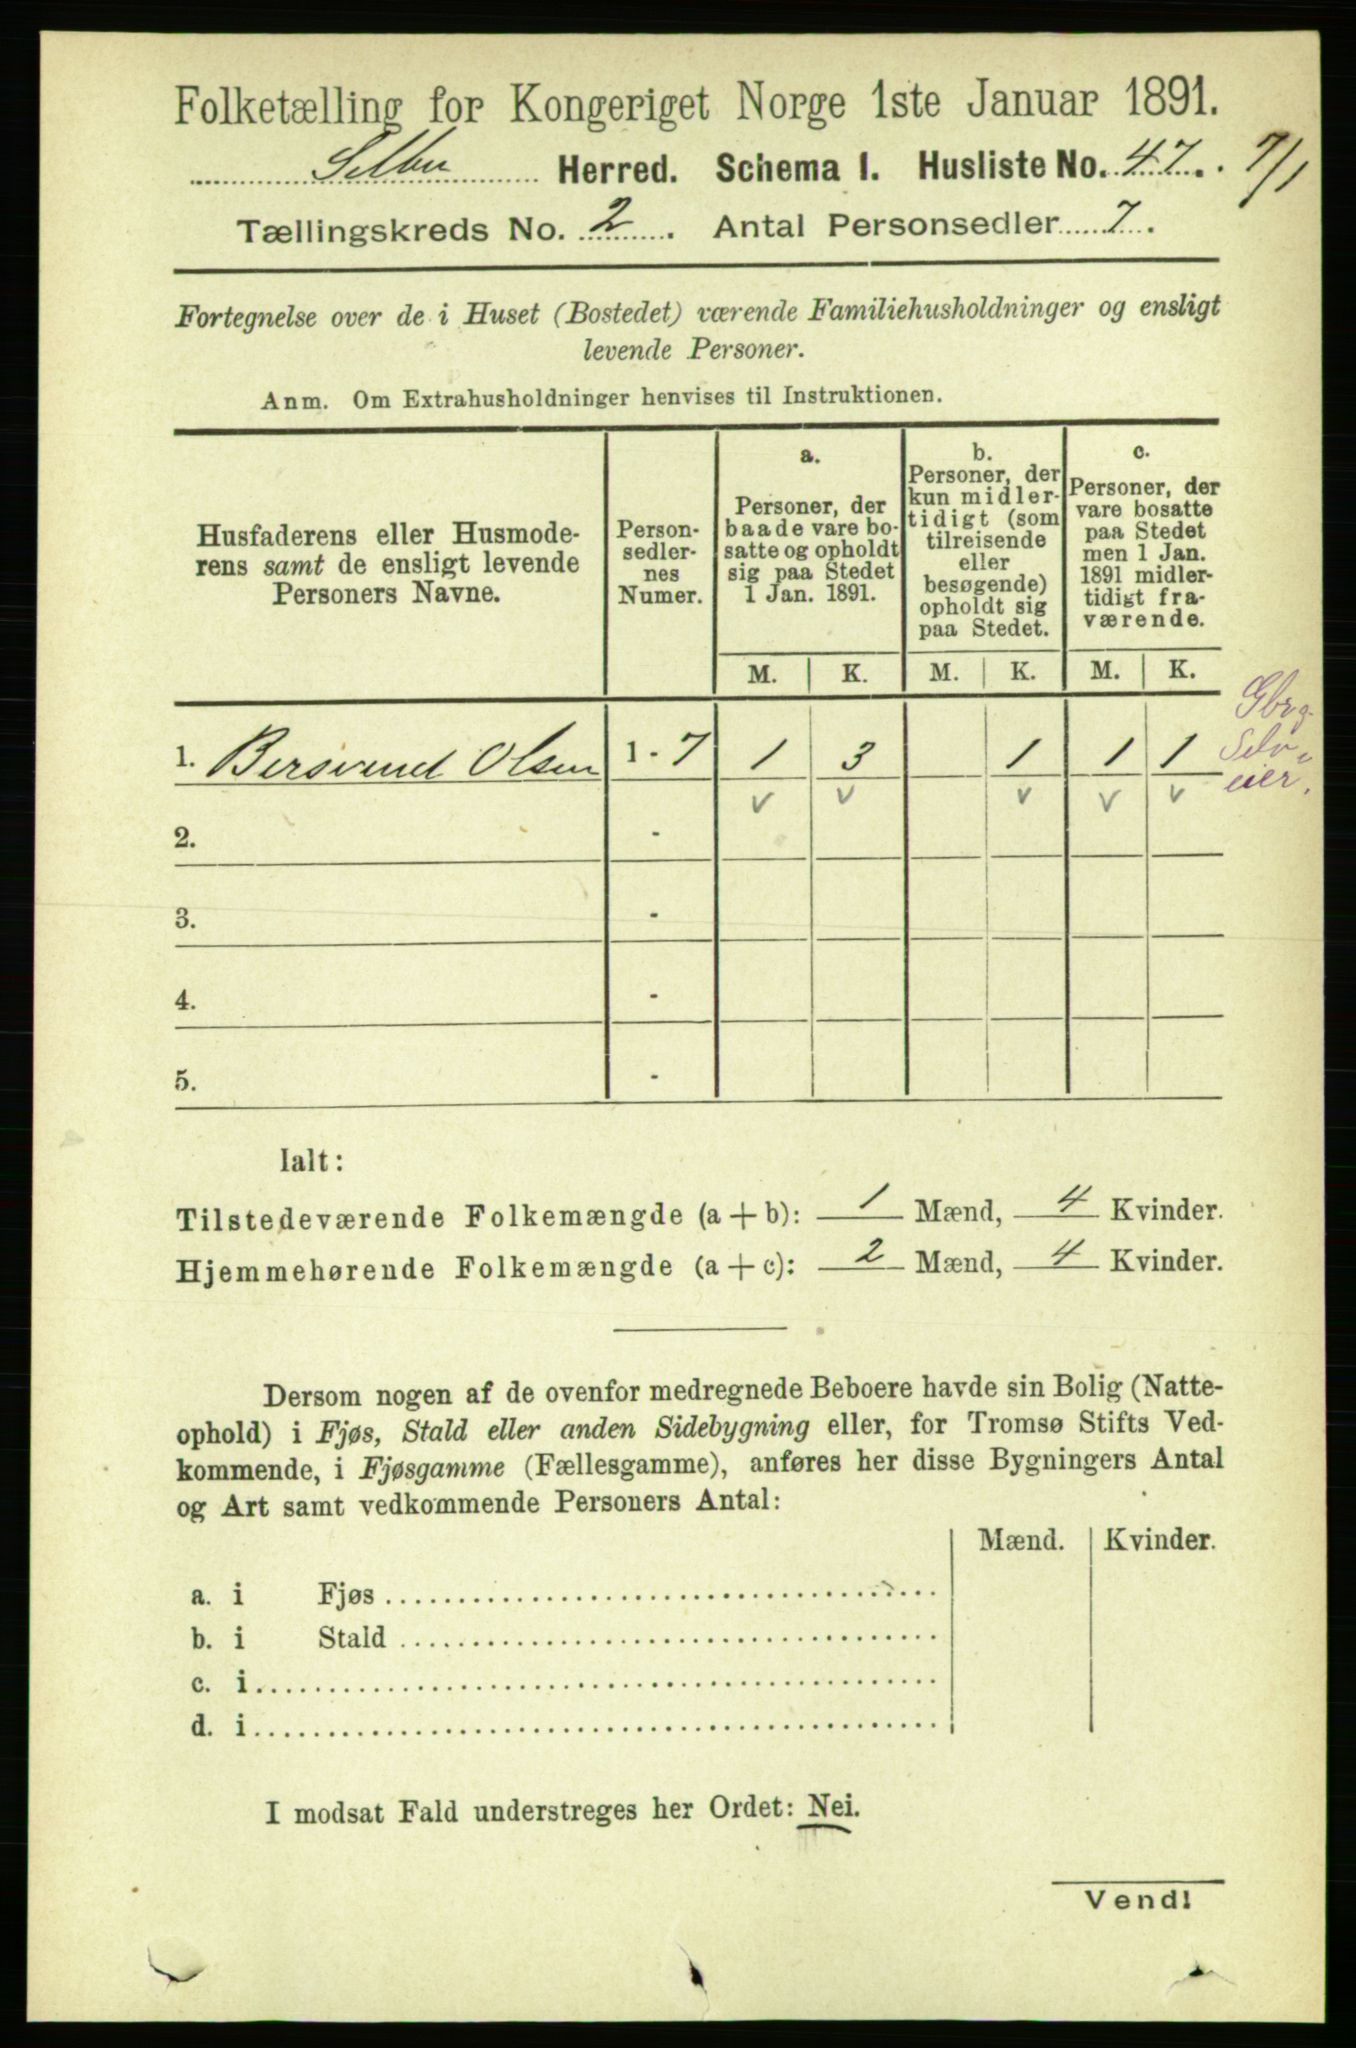 Folketælling for Kongeriget Norge 1ste Januar 1891.
Selbu Herred. Schema I. Husliste No. 47. 7/1
Tællingskreds No. 2. Antal Personsedler 7.
Fortegnelse over de i Huset (Bostedet) værende Familiehusholdninger og ensligt
levende Personer.
Anm. Om Extrahusholdninger henvises til Instruktionen.
Husfaderens eller Husmode-
rens samt de ensligt levende
Personers Navne.
Person-
sedler-
nes
Numer.
a.
Personer, der
baade vare bo-
satte og opholdt
sig paa Stedet
1 Jan. 1891.
b.
Personer, der
kun midler-
tidigt (som
tilreisende
eller
besøgende)
opholdt sig
paa Stedet.
c.
Personer, der
vare bosatte
paa Stedet
men 1 Jan.
1891 midler-
tidigt fra-
værende.
M. K. M. K. M. K.
1. Bersvend Olsen 1 - 7 1 3 1 1 1
Gbrg.
Selv-
eier.
v v v v v
2. -
3. -
4. -
5. -
Ialt:
Tilstedeværende Folkemængde (a + b): 1 Mænd, 4 Kvinder.
Hjemmehørende Folkemængde (a + c): 2 Mænd, 4 Kvinder.
Dersom nogen af de ovenfor medregnede Beboere havde sin Bolig (Natte-
ophold) i Fjøs, Stald eller anden Sidebygning eller, for Tromsø Stifts Ved-
kommende, i Fjøsgamme (Fællesgamme), anføres her disse Bygningers Antal
og Art samt vedkommende Personers Antal:
Mænd. Kvinder.
a. i Fjøs
b. i Stald
c. i
d. i
I modsat Fald understreges her Ordet: Nei.
Vend!